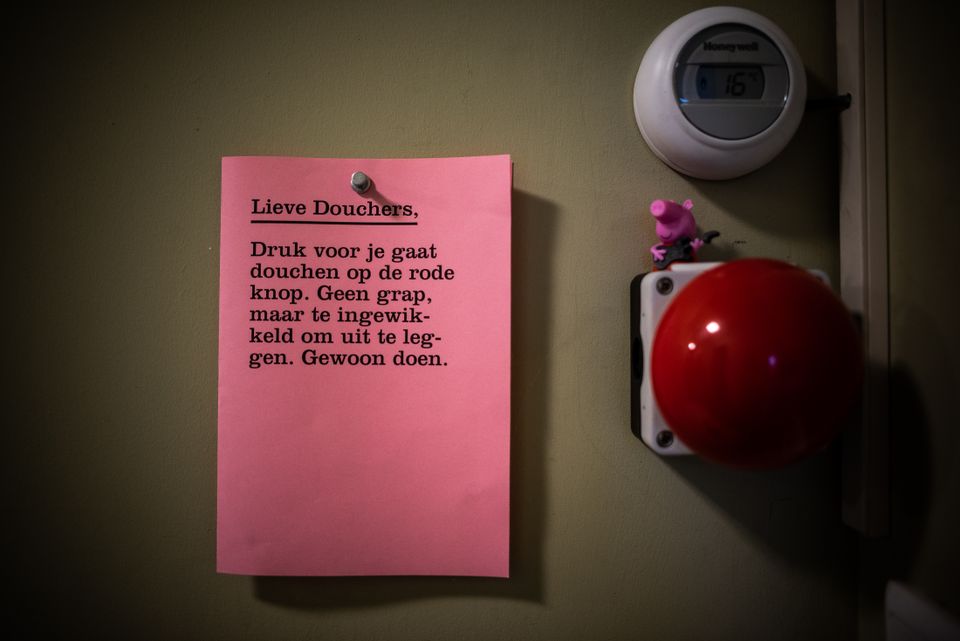 Honeywell
16 °C
Lieve Douchers,
Druk voor je gaat
douchen op de rode
knop. Geen grap,
maar te ingewik-
keld om uit te leg-
gen. Gewoon doen.